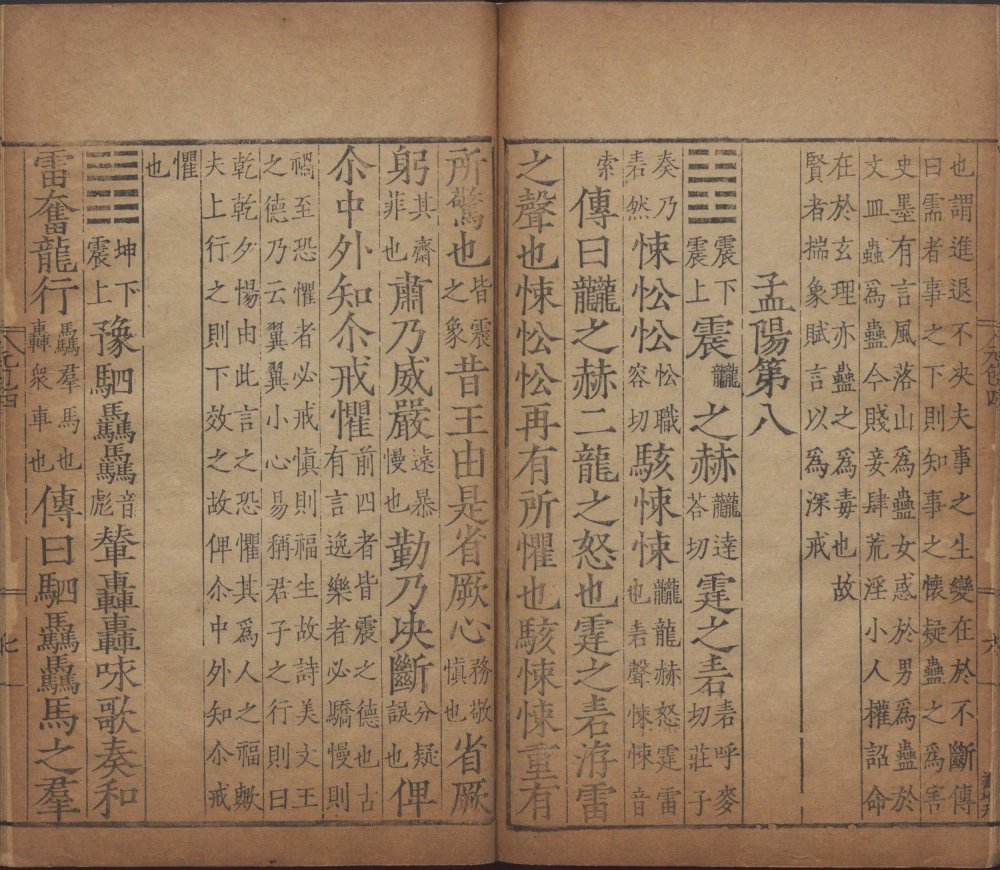 也謂進退不決夫事之生變在於不斷傳
曰需者事之下則知事之懷疑蠱之爲害
史墨有言風落山爲蠱女惑於男爲蠱於
文皿蟲爲蠱今賤妾肆荒淫小人權詔命
在於玄理亦蠱之爲毒也故
賢者揣象賦言以爲深戒
孟陽第八
䷲震下震上震龖之赫龖達荅切霆之砉砉呼麥切莊子
奏乃砉然悚忪忪忪職容切駭悚悚龖龍赫怒霆雷也砉聲悚悚音
索傳曰龖之赫二龍之怒也霆之砉游雷
之聲也悚忪忪再有所懼也駭悚悚重有
所驚也皆震之象昔王由是省厥心務敬慎也省厥
躬其齋菲也肅乃威嚴遠暴慢也勤乃決斷分疑誤也俾
尒中外知尒戒懼前四者皆震之德也古有言逸樂者必驕慢則
禍至恐懼者必戒慎則福生故詩美文王
之德乃云翼翼小心易稱君子之行則曰
乾乾夕惕由此言之恐懼其爲人之福歟
夫上行之則下效之故俾尒中外知尒戒
懼也
䷏坤下震上豫駟驫驫音彪輦轟轟咏歌奏和
雷奮龍行驫羣馬也轟衆車也傳曰駟驫驫馬之羣